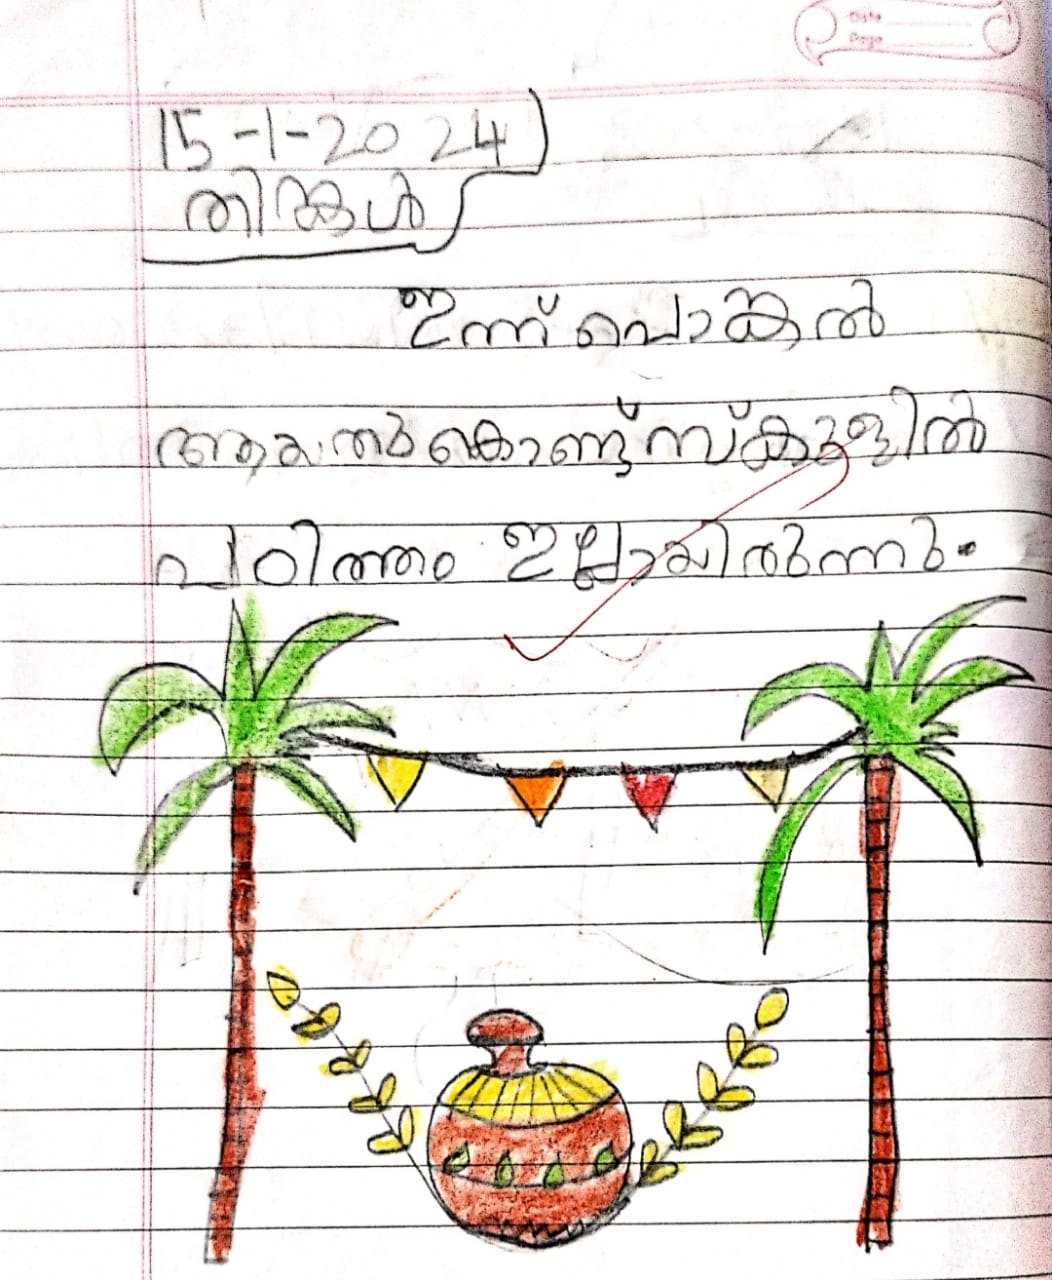 Date
Page
15-1-2024
തിങ്കൾ
ഇന്ന് പൊങ്കൽ
ആയതുകൊണ്ട് സ്കൂളിൽ
പഠിത്തം ഇല്ലായിരുന്നു.